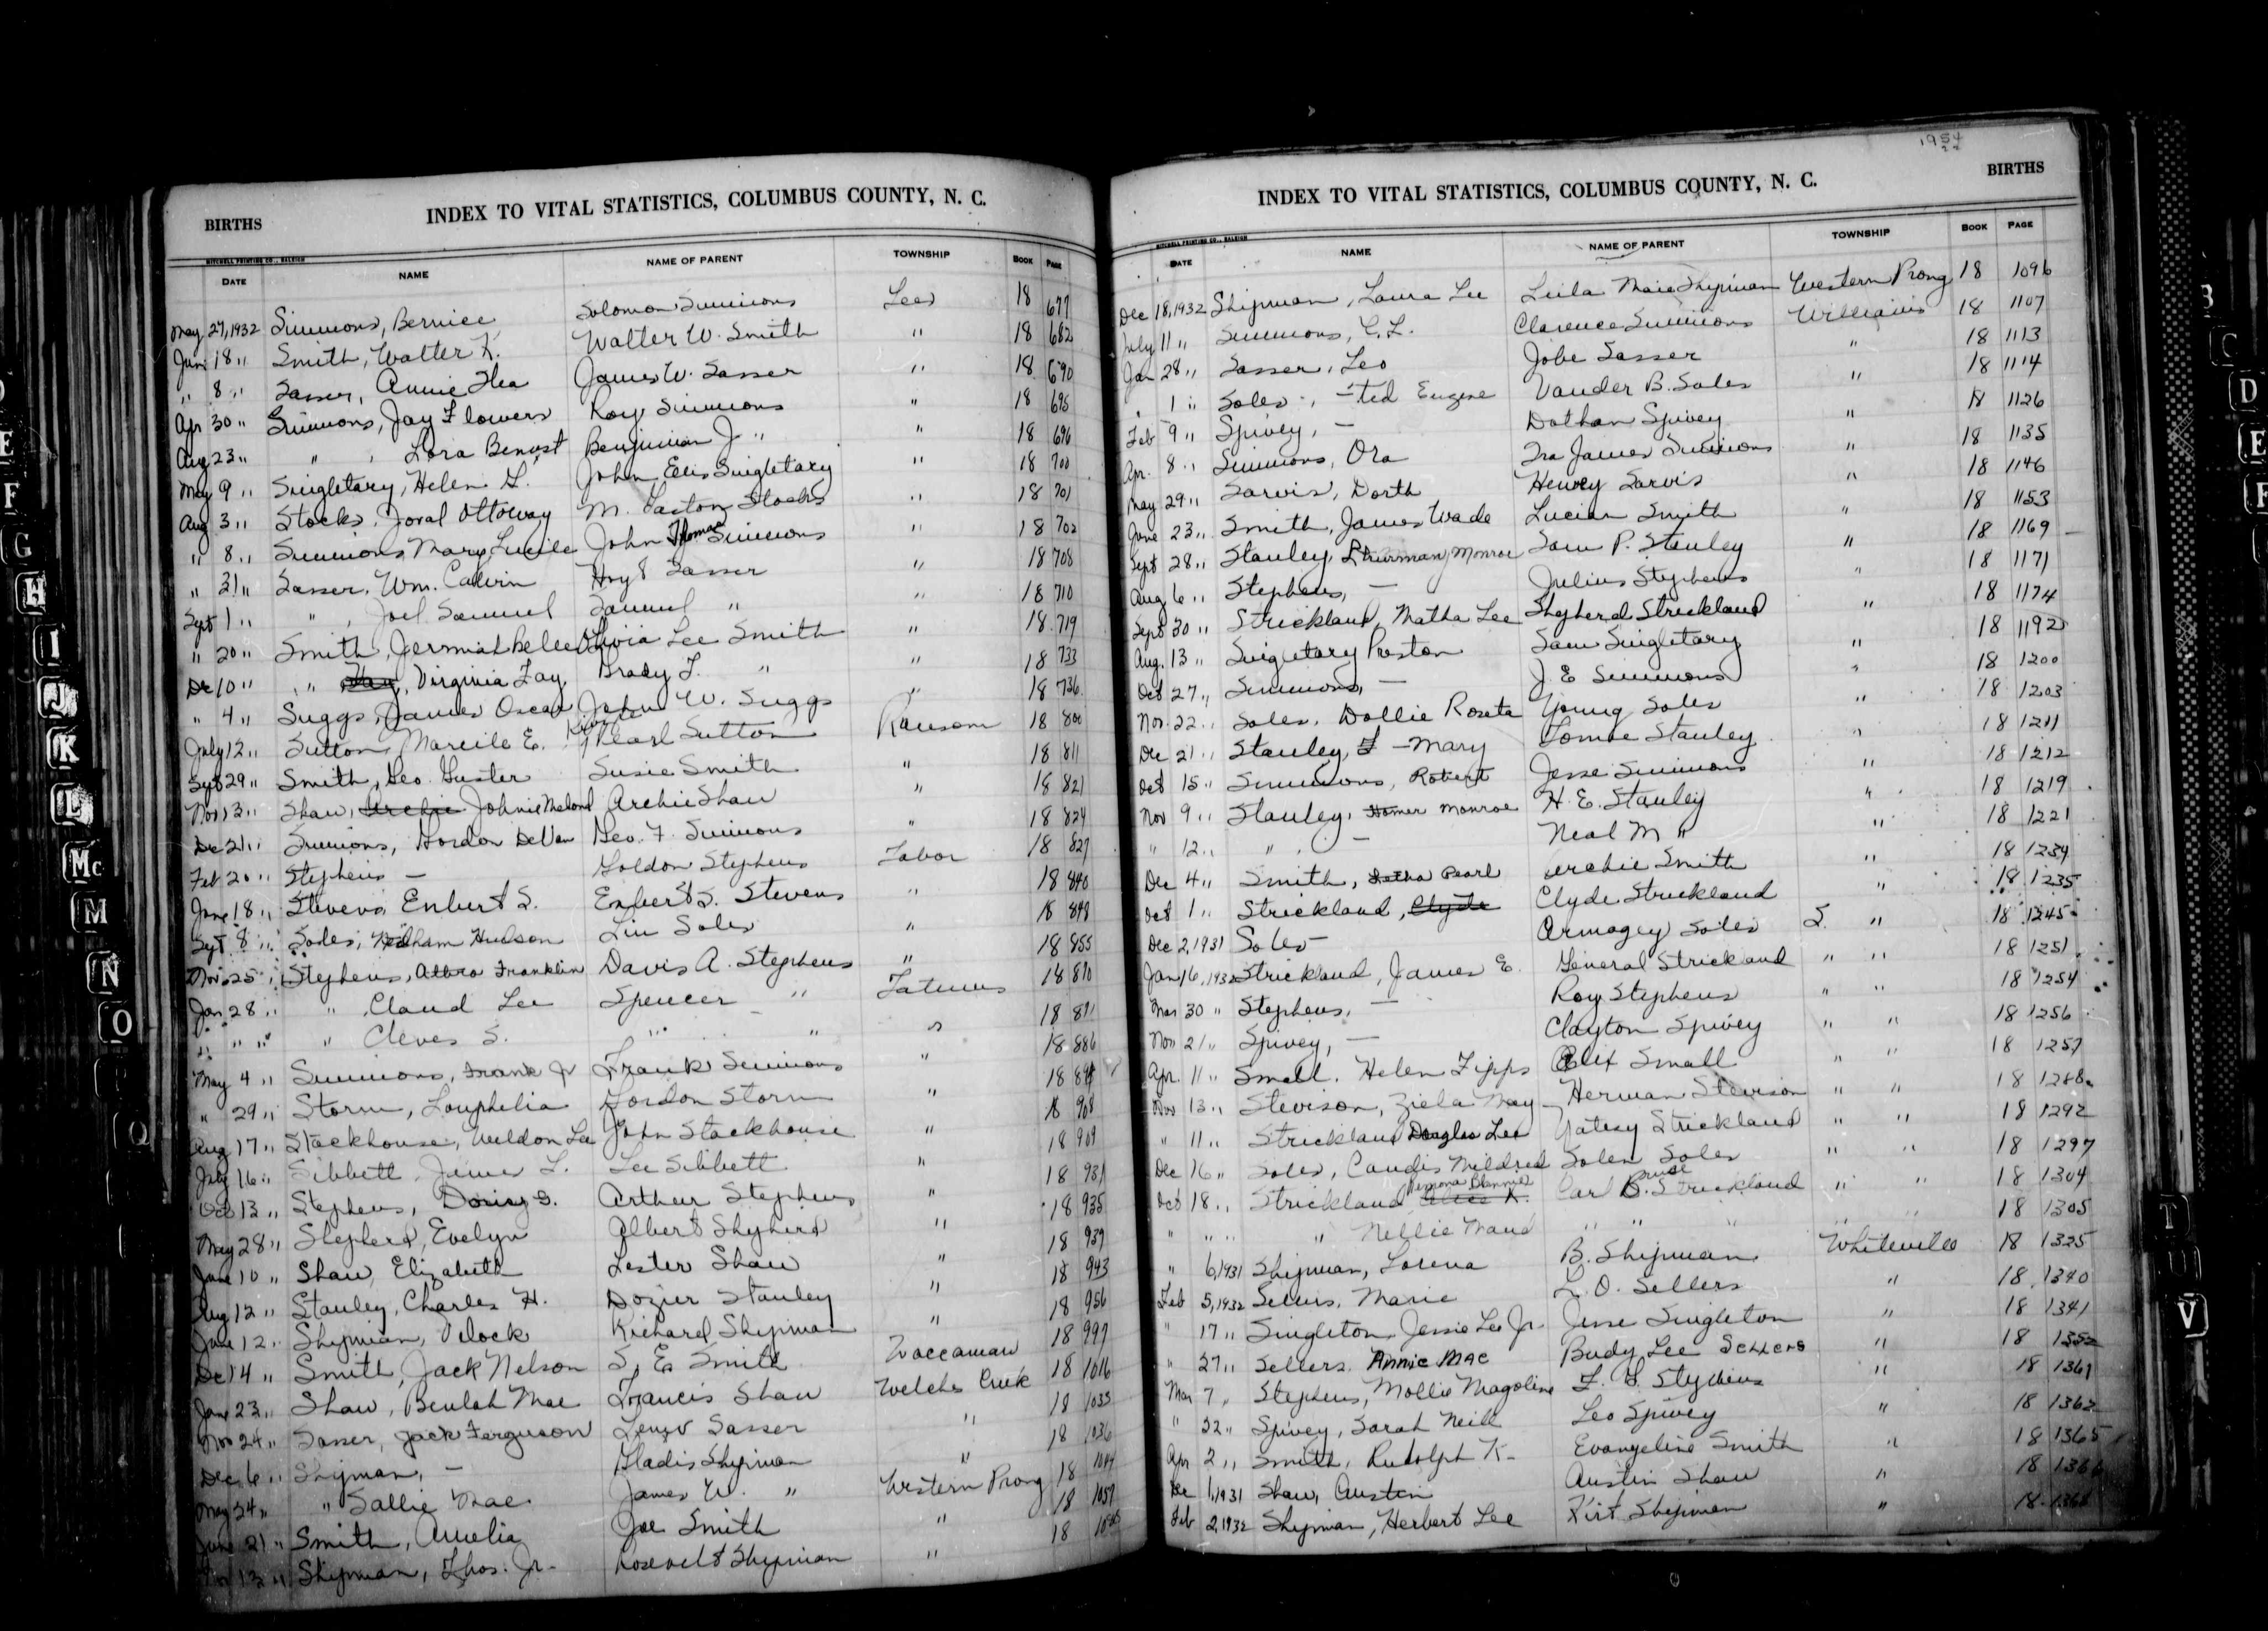 BIRTHS
INDEX TO VITAL STATISTICS, COLUMBUS COUNTY, N. C.
MITCHELL PRINTING CO., RALEIGH
DATE NAME NAME OF PARENT TOWNSHIP BOOK PAGE
May 27, 1932 Simmons, Bernice Solomon Simmons Lees 18 677
June 18 " Smith, Walter K. Walter W. Smith " 18 682
" 8 " Sasser, Annie James W. Sasser " 18 690
Apr 30 " Simmons, Jay Flowers Roy Simmons " 18 695
Aug 23 " " , Lora Benjiman J " " 18 696
May 9 " Singletary, Helen L. John Elis Singletary " 18 700
Aug 3 " Stocks, Joval Ottoway M. Easton Stocks " 18 701
" 8 " Simmons, Mary Lucile John Thomas Simmons " 18 702
" 21 " Sasser, Wm. Calvin Hoyt Sasser " 18 708
Sept 1 " " , Joel Samuel Samuel " " 18 710
" 20 " Smith, Olivia Lee Smith " 18 719
Dec 10 " " , Virginia Fay Brady F. " " 18 733
" 4 " Suggs, James Oscar John W. Suggs " 18 736
July 12 " Sutton, Marcile E. Pearl Sutton Ransom 18 800
Sept 29 " Smith, Geo. Luster Susie Smith " 18 811
Nov 13 " Shaw, Archie Johnie Archie Shaw " 18 821
Dec 21 " Simmons, Gordon DeVan Geo. F. Simmons " 18 824
Feb 20 " Stephens — Goldon Stephens Tabor 18 827
June 18 " Stevens, Enbert S. Enbert S. Stevens " 18 840
Sept 8 " Soles, Needham Hudson Lin Soles " 18 848
Nov 25 " Stephens, Franklin Davis A. Stephens " 18 855
Jan 28 " " , Claud Lee Spencer " Tatums 18 870
" " " " Cleves S. " " " 18 871
May 4 " Simmons, Frank Jr Frank Simmons " 18 886
" 29 " Storm, Louphelia Gordon Storm " 18
Aug 17 " Stackhouse, Weldon Lee John Stackhouse " 18 908
July 16 " Sibbett, James L. Lee Sibbett " 18 909
Oct 13 " Stephens, Arthur Stephens " 18 931
May 28 " Shepherd, Evelyn Albert Shepherd " 18 935
June 10 " Shaw, Elizabeth Lester Shaw " 18 939
Aug 12 " Stanley, Charles H. Dozier Stanley " 18 943
June 12 " Shipman, Velock Richard Shipman " 18 956
Dec 14 " Smith, Jack Nelson S. E. Smith Waccamaw 18 997
June 23 " Shaw, Beulah Mae Francis Shaw Welches Creek 18 1016
Nov 24 " Sasser, Jack Ferguson Sasser " 18 1035
Dec 6 " Shipman, — Gladis Shipman " 18 1036
May 24 " " Sallie Mae James W. " Western Prong 18
June 21 " Smith, Amelia Joe Smith " 18 1057
13 " Shipman, Thos. Jr. Rosevelt Shipman " 18
1954
BIRTHS
INDEX TO VITAL STATISTICS, COLUMBUS COUNTY, N. C.
MITCHELL PRINTING CO., RALEIGH
DATE NAME NAME OF PARENT TOWNSHIP BOOK PAGE
Dec 18, 1932 Shipman, Laura Lee Leila Maie Shipman Western Prong 18 1096
July 11 " Simmons, C. L. Clarence Simmons Williams 18 1107
Jan 28 " Sasser, Leo Jobe Sasser " 18 1113
" 1 " Soles, — Ted Eugene Vander B. Soles " 18 1114
Feb 9 " Spivey, — Dothan Spivey " 18 1126
Apr. 8 " Simmons, Ora Ira James Simmons " 18 1135
May 29 " Sarvis, Dorth Sarvis " 18 1146
June 23 " Smith, James Wade Lucian Smith " 18 1153
Sept 28 " Stanley, Thurman Monroe Sam P. Stanley " 18 1169
Aug 6 " Stephens, — Julius Stephens " 18 1171
Sept 30 " Strickland, Natha Lee Shepherd Strickland " 18 1174
Aug. 13 " Singletary Preston Sam Singletary " 18 1192
Oct 27 " Simmons, — J. E Simmons " 18 1200
Nov. 22 " Soles, Dollie Roseta Young Soles " 18 1203
Dec 21 " Stanley, F — Mary Lonnie Stanley " 18 1211
Oct 15 " Simmons, Robert Jesse Simmons " 18 1212
Nov 9 " Stanley, Homer Monroe H. E. Stanley " 18 1219
" 12 " " , — Neal M " " 18 1221
Dec 4 " Smith, Pearl Archie Smith " 18 1234
Oct 1 " Strickland, Clyde Clyde Strickland " 18 1235
Dec 2, 1931 Soles — Armagey Soles S. " 18 1245
Jan 16, 1932 Strickland, James E. General Strickland " " 18 1251
Mar 30 " Stephens, — Roy Stephens " " 18 1254
Nov 21 " Spivey, — Clayton Spivey " " 18 1256
Apr. 11 " Small, Helen Fipps Alex Small " " 18 1257
Nov 13 " Stevison, Ziela May Herman Stevison " " 18 1288
" 11 " Strickland Douglas Lee Yatesy Strickland " " 18 1292
Dec 16 " Soles, Candis Mildred Solen Soles " " 18 1297
Oct 18 " Strickland Alice K. Carl B. Strickland " " 18 1304
" " " " Nellie Maud " " " " " 18 1305
" 6, 1931 Shipman, Lorena B. Shipman Whiteville 18 1325
Feb 5, 1932 Sellers, Marie L. O. Sellers " 18 1340
" 17 " Singleton, Jessie Lee Jr. Jesse Singleton " 18 1341
" 27 " Sellers, Annie Mae Budy Lee Sellers " 18 1352
Mar 7 " Stephens, Mollie Magoline F. G. Stephens " 18 1361
" 22 " Spivey, Sarah Neill Leo Spivey " 18 1362
Apr 2 " Smith, Rudolph K. Evangeline Smith " 18 1365
Dec 1, 1931 Shaw, Austin Austin Shaw " 18 1366
Feb 2, 1932 Shipman, Herbert Lee Kirt Shipman " 18 1368
E
F
G
H
I
J
K
L
Mc
M
N
O
Q
C
D
E
F
T
U
V